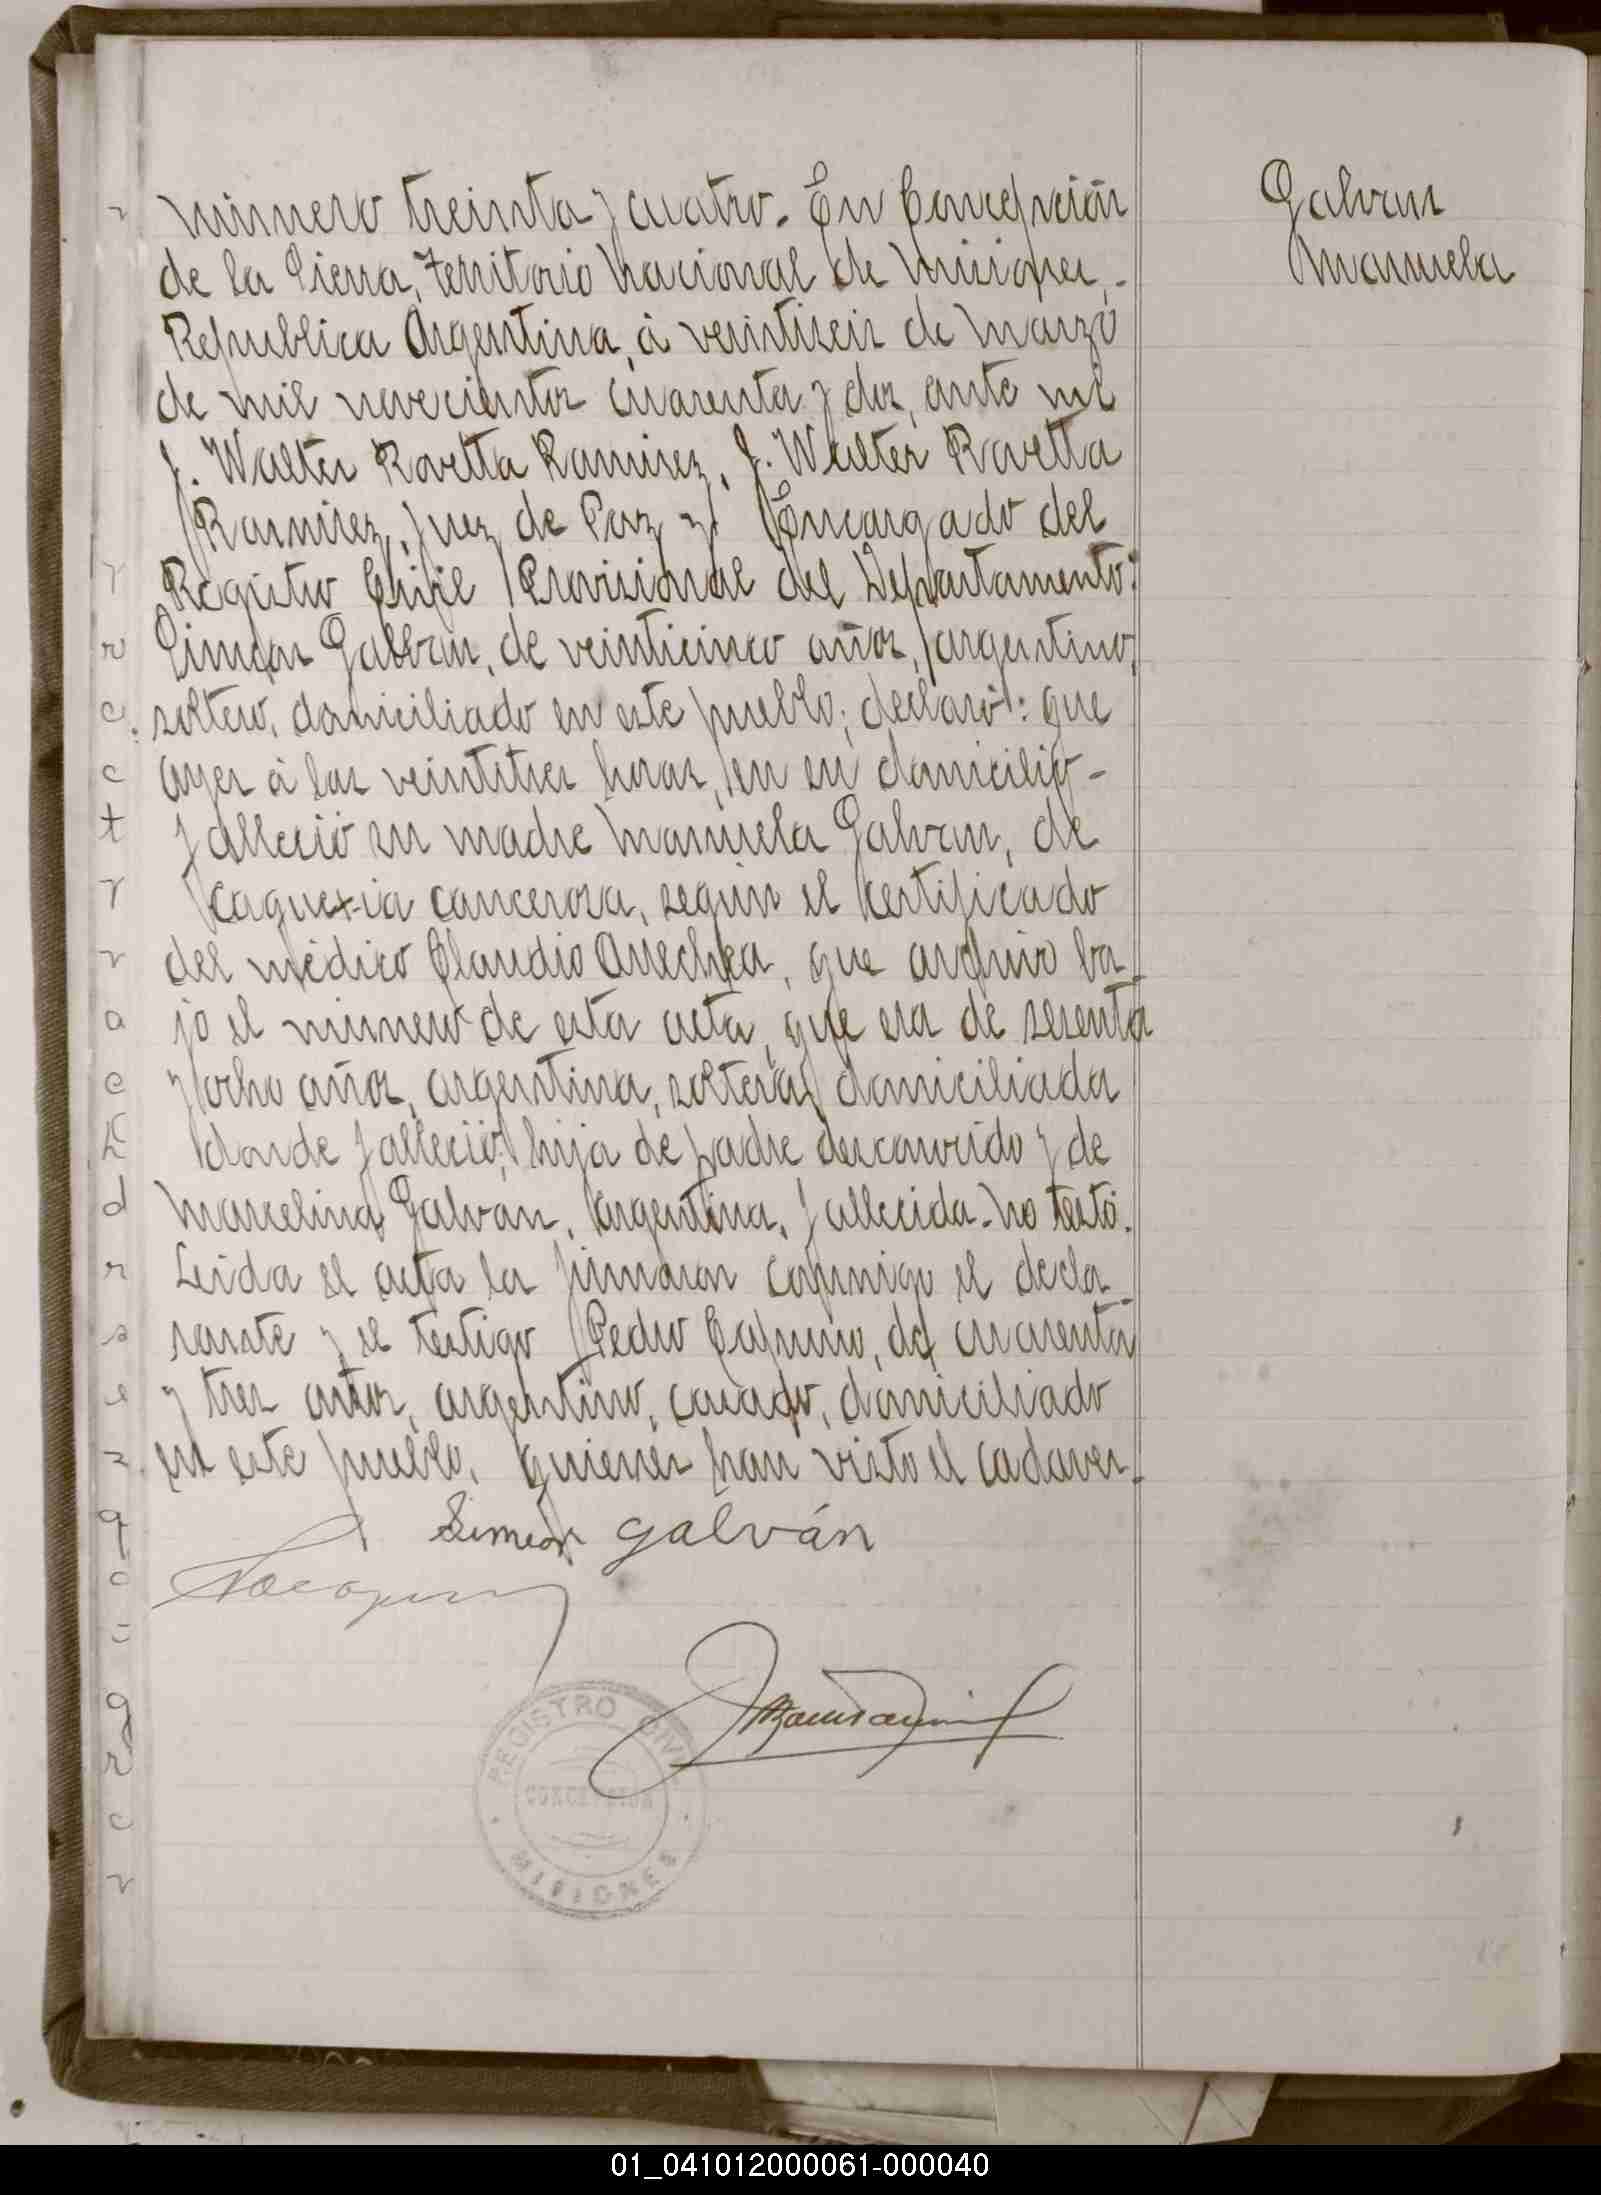 Galvan
Manuela
número treinta y cuatro. En Concepción
de la Sierra, Territorio Nacional de Misiones,-
Republica Argentina, á veintiseis de marzo
de mil novecientos cuarenta y dos, ante mi
J. Walter Rovetta Ramirez, J. Walter Rovetta
Ramirez, Juez de Paz y Encargado del
Registro Civil Provisional del Departamento:
Simeon Galvan, de veinticinco años, argentino,
soltero, domiciliado en este pueblo; declaró: que
ayer á las veintitres horas, en su domicilio-
falleció su madre Manuela Galvan, de
caquexia cancerosa, según el certificado
del médico Claudio Arrechea, que archivo ba_
jo el número de esta acta, que era de sesenta
y ocho años, argentina, soltera, domiciliada
donde falleció; hija de padre desconocido y de
Marcelina Galvan, argentina, fallecida. No testó.
Leida el acta la firmaron conmigo el decla_
rante y el testigo Pedro, de cuarenta
y tres años, argentino, casado, domiciliado
en este pueblo, quienes han visto el cadaver.
Simeon Galván
REGISTRO CIVIL
CONCEPCION
MISIONES
01_041012000061-000040